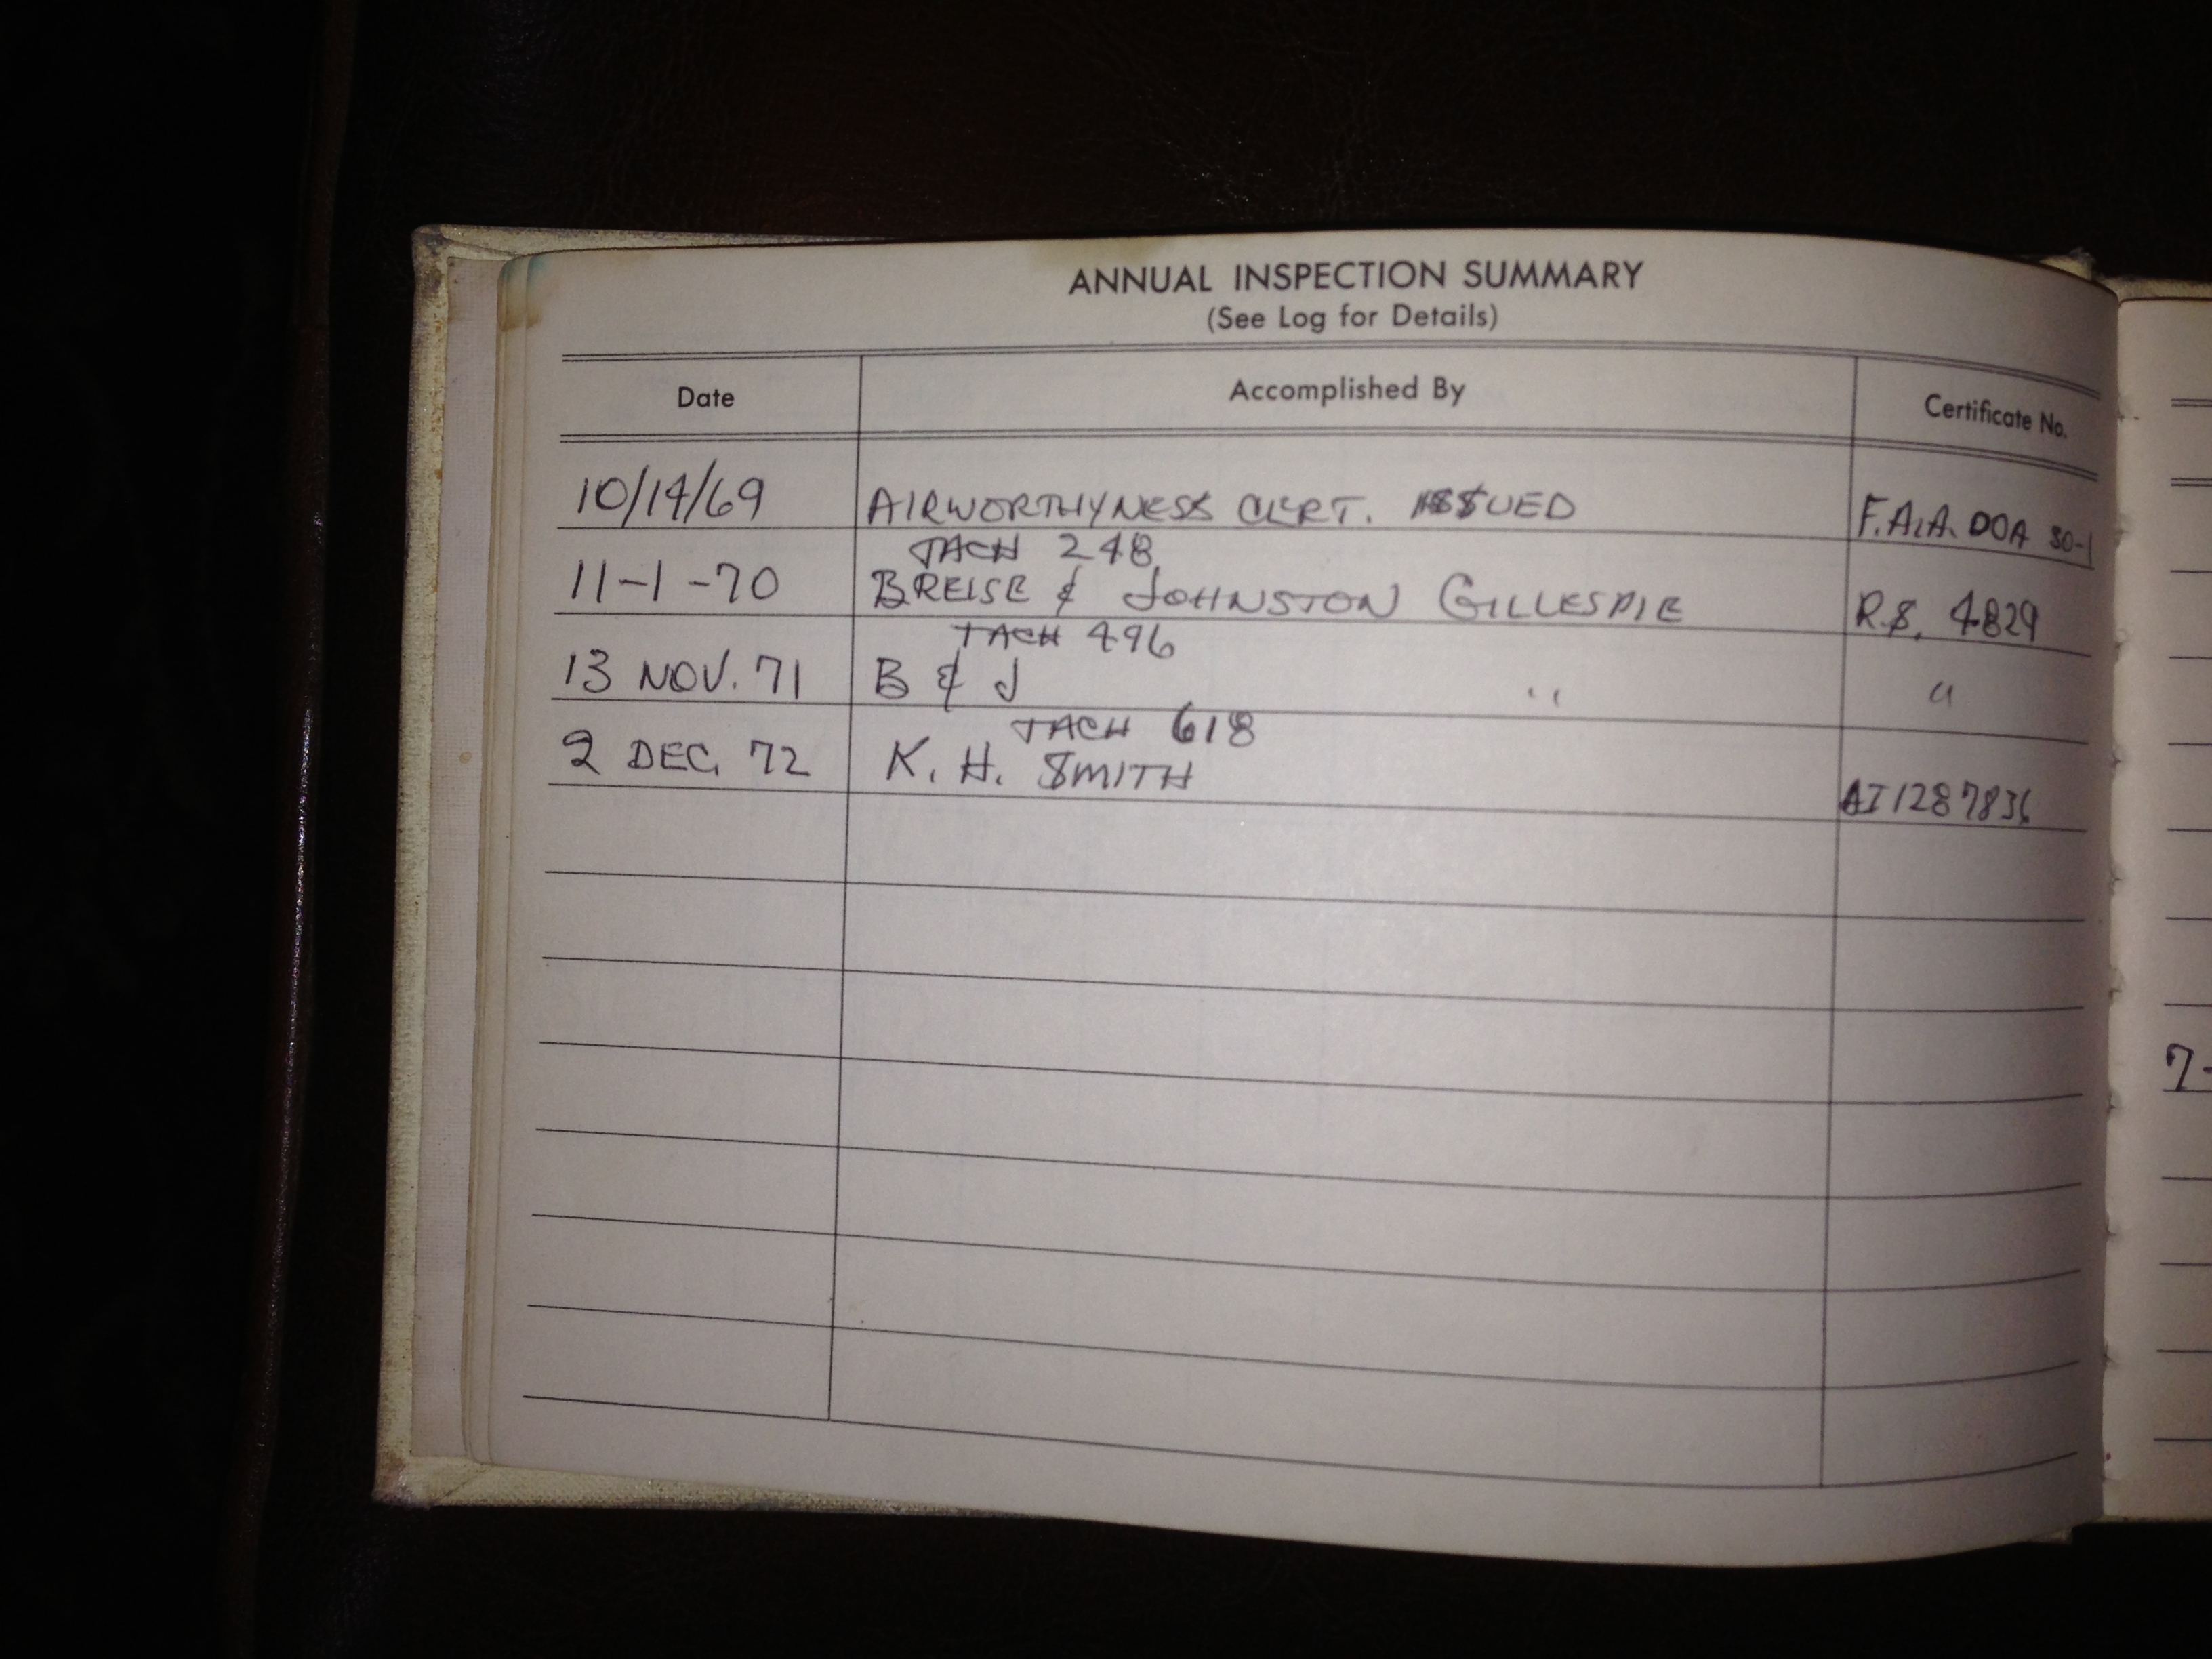 ANNUAL INSPECTION SUMMARY
(See Log for Details)
Date Accomplished By Certificate No.
10/14/69 AIRWORTHYNESS CERT. ISSUED F.A.A. DOA SO-1
TACH 248
11-1-70 BREISE & JOHNSTON GILLESPIE R.S. 4829
TACH 496
13 NOV. 71 B & J " "
TACH 618
2 DEC. 72 K. H. SMITH AI1287836
7-